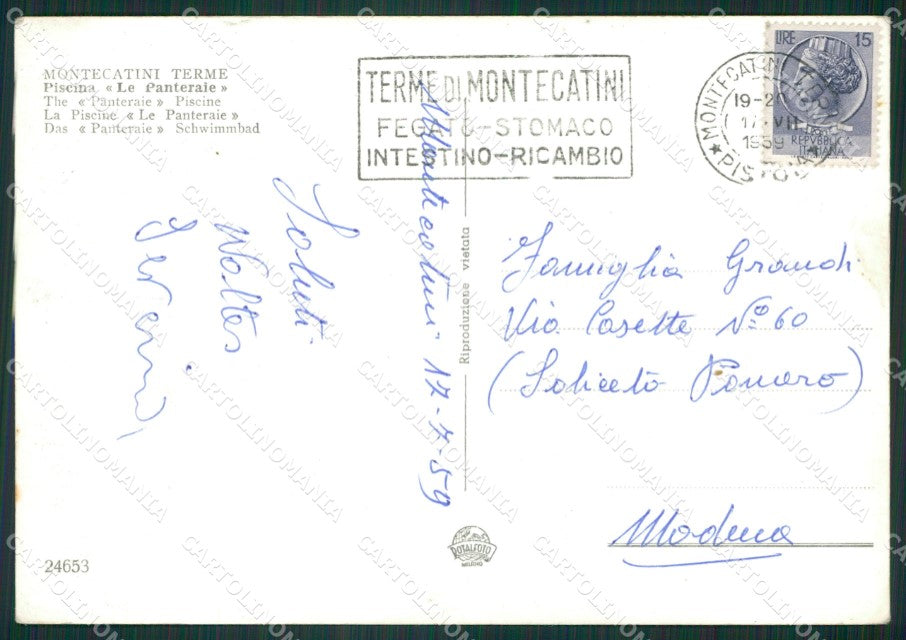 MONTECATINI TERME
Piscina « Le Panteraie »
The « Panteraie » Piscine
La Piscine « Le Panteraie »
Das « Panteraie » Schwimmbad
TERME DI MONTECATINI
FEGATO-STOMACO
INTESTINO-RICAMBIO
MONTECATINI TERME
19-20
17 VII
1959
PISTOIA
LIRE 15
REPVBBLICA
ITALIANA
Montecatini 17-7-59
Saluti
Walter
Riproduzione vietata
Famiglia Grandi
Via Casette Nº 60
(Saliceto Panaro)
Modena
ROTALFOTO
MILANO
24653
CARTOLINOMANIA